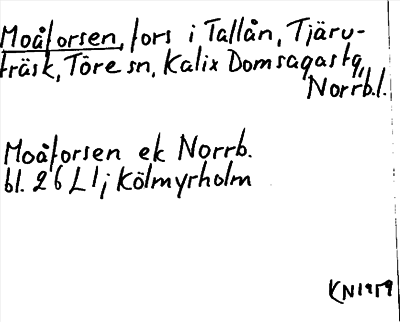 Moåforsen, fors i Tallån, Tjäru-
träsk, Töre sn, Kalix Domsagastg,
Norrb.l.
Moåforsen ek Norrb.
bl. 26 L1; Kölmyrholm
KN1959